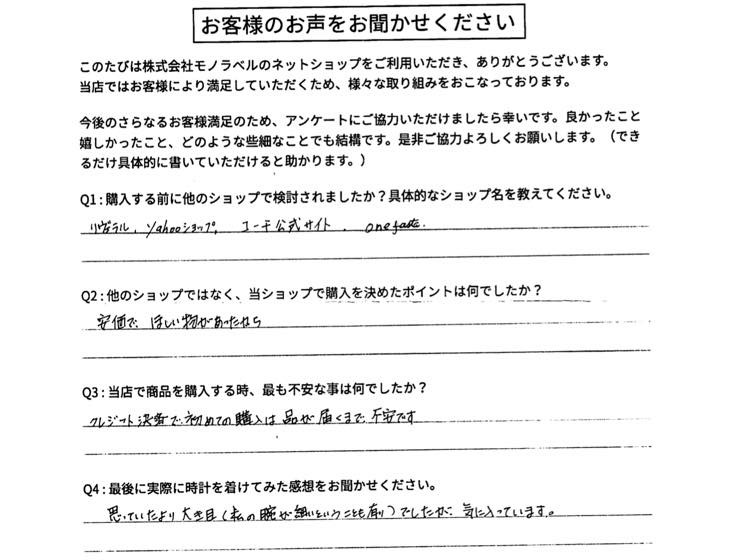 お客様のお声をお聞かせください
このたびは株式会社モノラベルのネットショップをご利用いただき、ありがとうございます。
当店ではお客様により満足していただくため、様々な取り組みをおこなっております。
今後のさらなるお客様満足のため、アンケートにご協力いただけましたら幸いです。良かったこと
嬉しかったこと、どのような些細なことでも結構です。是非ご協力よろしくお願いします。（でき
るだけ具体的に書いていただけると助かります。）
Q1:購入する前に他のショップで検討されましたか？具体的なショップ名を教えてください。
Yahooショップ, コーチ公式サイト、
Q2:他のショップではなく、当ショップで購入を決めたポイントは何でしたか？
安価で、ほしい物があったから
Q3:当店で商品を購入する時、最も不安な事は何でしたか？
クレジット決済で初めての購入は品が届くまで不安です
Q4:最後に実際に時計を着けてみた感想をお聞かせください。
思っていたより大き目(私の腕が細いということも有り)でしたが、気に入っています。